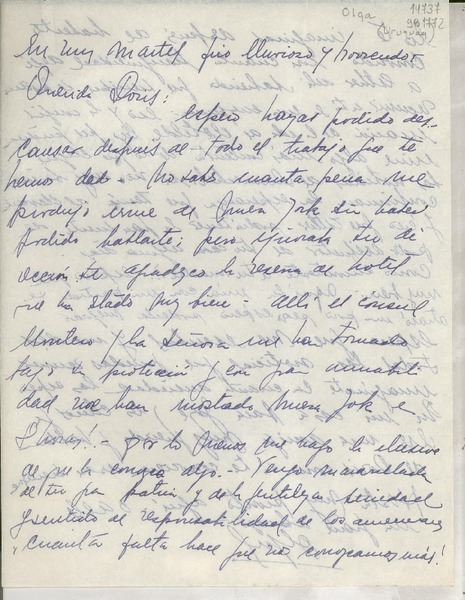 Olga
(Uruguay)
14737
981772
En un martes frio lluvioso y horrendo
Querida Doris:
espero hayas podido des-
cansar despues de todo el trabajo que te
hemos dado. No sabes cuanta pena me
produjo irme de Nueva York sin haber
podido hablarte; pero ignoraba tu di
rección. te agradezco la reserva de hotel
me ha estado muy bien - Allí el cónsul
Montero y la Señora me han tomado
bajo su protección y con gran amabili
dad me han mostrado Nueva York en
2 horas! - por lo menos me hago la ilusion
de que la conozco algo. - Vengo maravillada
de tu gran patria y de la gentileza seriedad
y sentido de responsabilidad de los americanos
¡cuanta falta hace que nos conozcamos más!